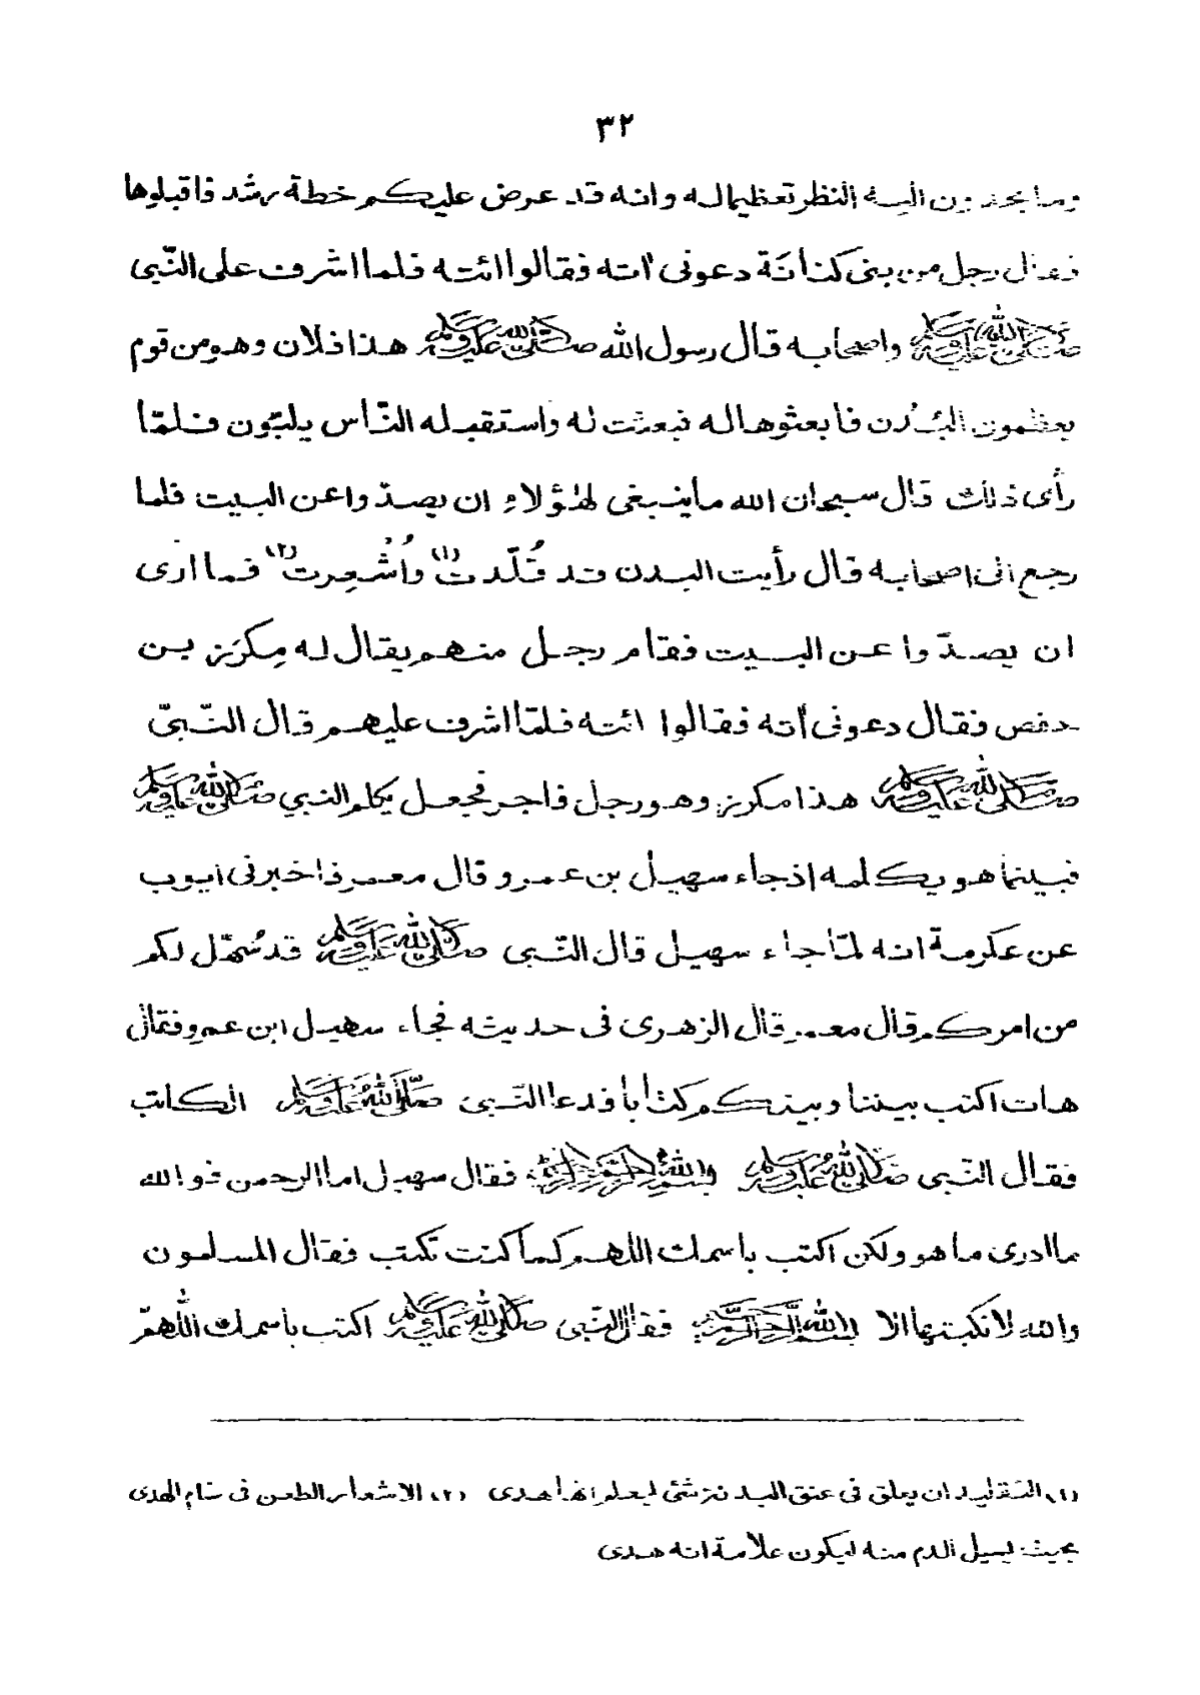 ٣٢
وما يحدون اليه النظر تعظيما له وانه قد عرض عليكم خطة رشد فاقبلوها
فقال رجل من بنى كنانَة دعونى آته فقالوا ائته فلما اشرف على النّبى
صلى الله عليه وسلم واصحابه قال رسول الله صلى الله عليه وسلم هذا فلان وهومن قوم
يعظمون البُدن فابعثوها له فبعثت له واستقبله النّاس يلبّون فلمّا
رأى ذلك قال سبحان الله ماينبغى لهؤلاءِ ان يصدّواعن البيت فلما
رجع الى اصحابه قال رأيت البدن قد قُلّدت (١) واُشْعِرت (٢) فما ارى
ان يصدّوا عن البيت فقام رجل منهم يقال له مِكرَز بن
حفص فقال دعونى آته فقالوا ائته فلمّا اشرف عليهم قال النّبىّ
صلى الله عليه وسلم هذا مكرز وهو رجل فاجر فجعل يكلم النبي صلى الله عليه وسلم
فبينما هو يكلمه اذجاء سهيل بن عمرو قال معمر فاخبرنى ايوب
عن عكرمة انه لمّا جاء سهيل قال النّبى صلى الله عليه وسلم قد سُهّل لكم
من امركم قال معمر قال الزهرى فى حديثه فجاء سهيل ابن عمرو فقال
هات اكتب بيننا وبينكم كتابا فدعا النّبى صلى الله عليه وسلم الكاتب
فقال النّبى صلى الله عليه وسلم بسم الله الرحمن الرحيم فقال سهيل اما الرحمن فوالله
ماادرى ما هو ولكن اكتب باسمك اللهم كما كنت تكتب فقال المسلمون
والله لانكتبها الا بسم الله الرحمن الرحيم فقال النّبى صلى الله عليه وسلم اكتب باسمك اللهمّ
(١) التقليد ان يعلق فى عنق البدنة شئ ليعلم انها هدى (٢) الاشعار الطعن فى سنام الهدى
بحيث يسيل الدم منه ليكون علامة انه هدى